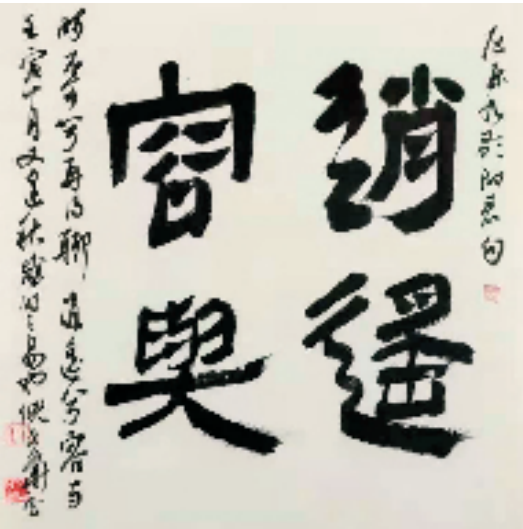 屈原九歌湘君句
逍遙
容與
時不可兮再得聊逍遥兮容与
壬寅十月又逢秋